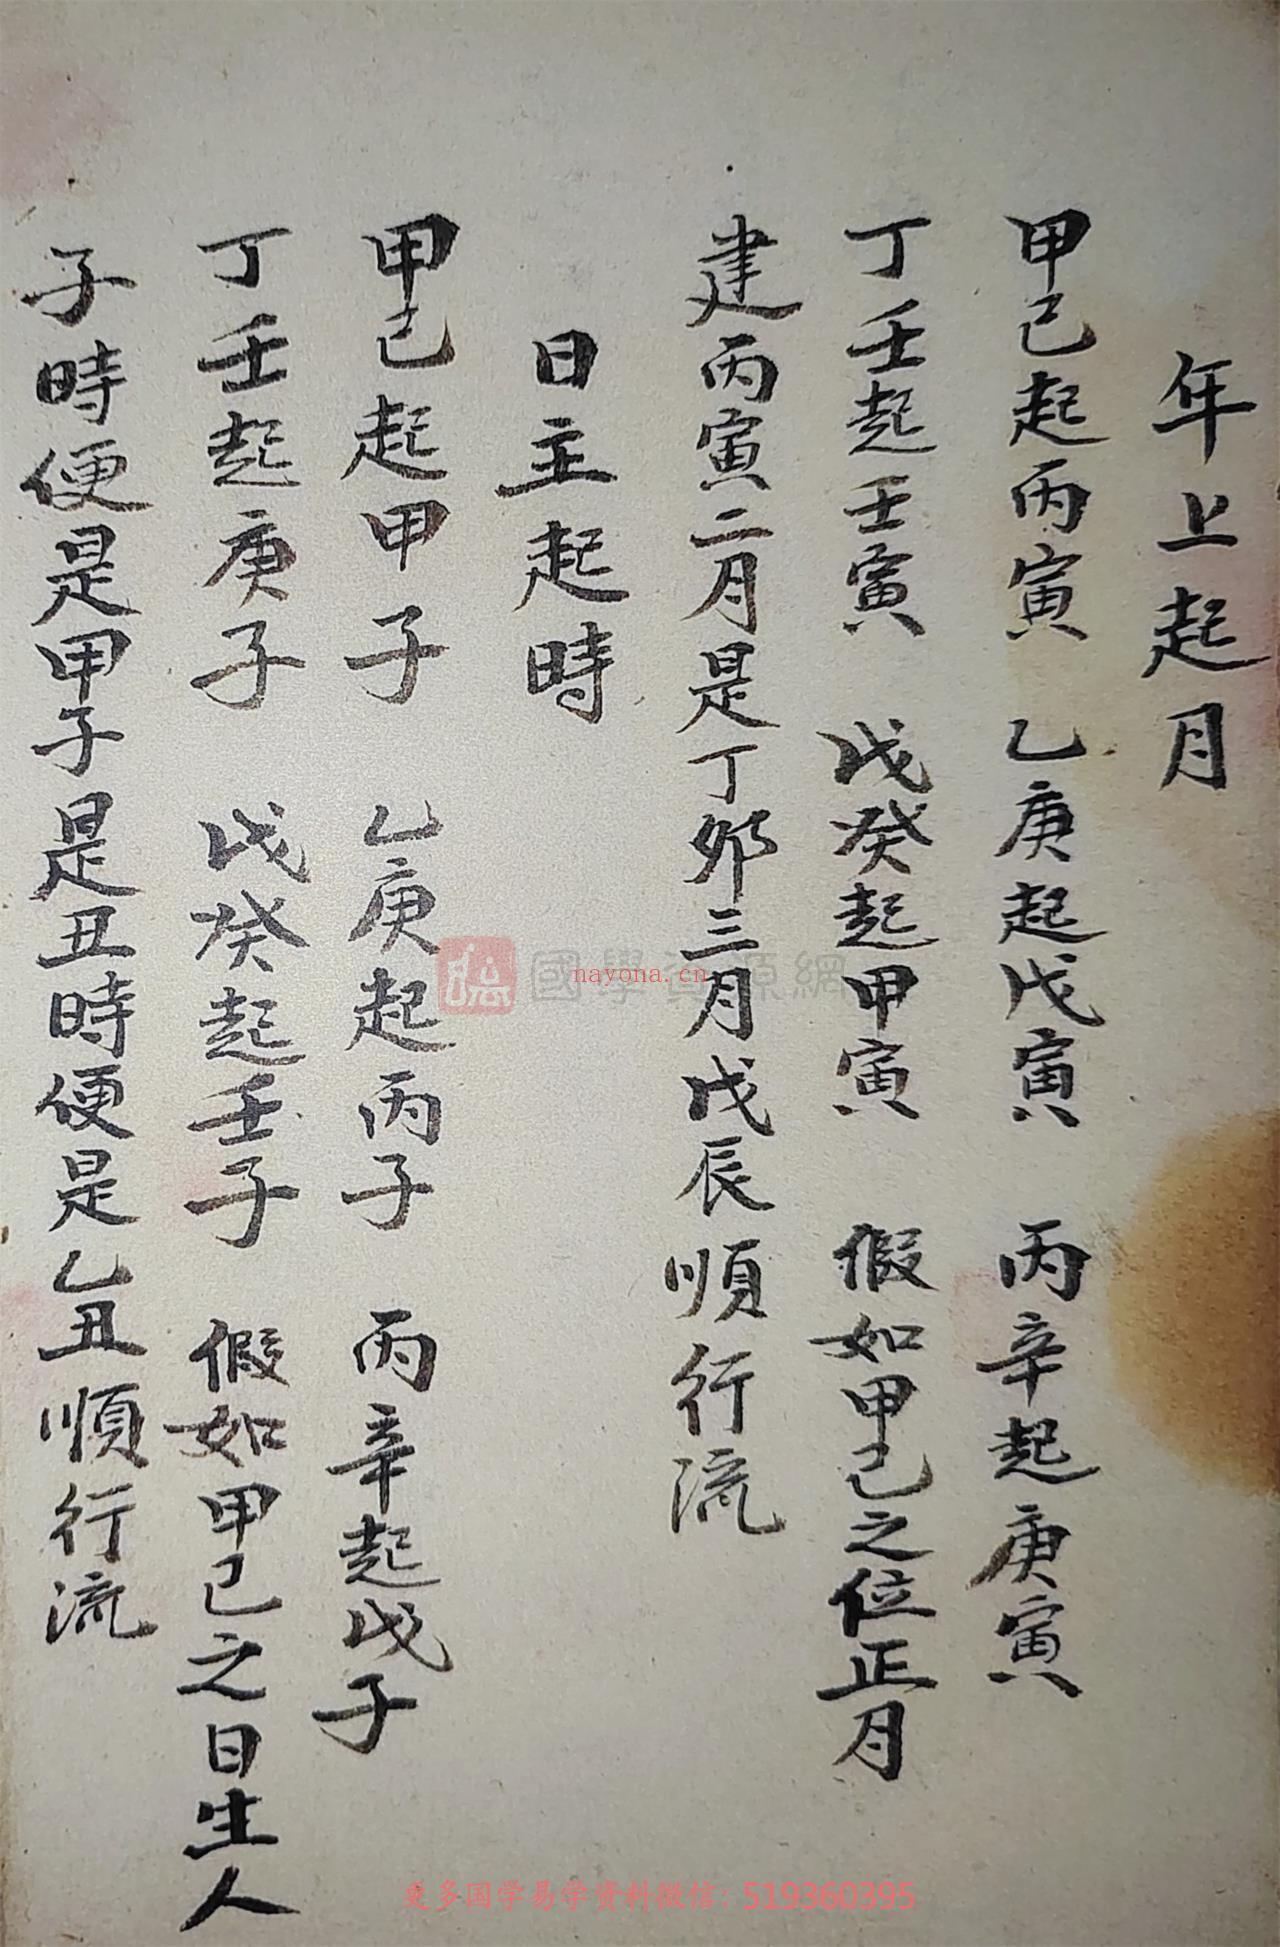 年上起月
甲己起丙寅 乙庚起戊寅 丙辛起庚寅
丁壬起壬寅 戊癸起甲寅 假如甲己之位正月
建丙寅二月是丁卯三月戊辰順行流
日主起時
甲己起甲子 乙庚起丙子 丙辛起戊子
丁壬起庚子 戊癸起壬子 假如甲己之日生人
子時便是甲子是丑時便是乙丑順行流
國學資源網
nayona.cn
更多国学易学资料微信：519360395